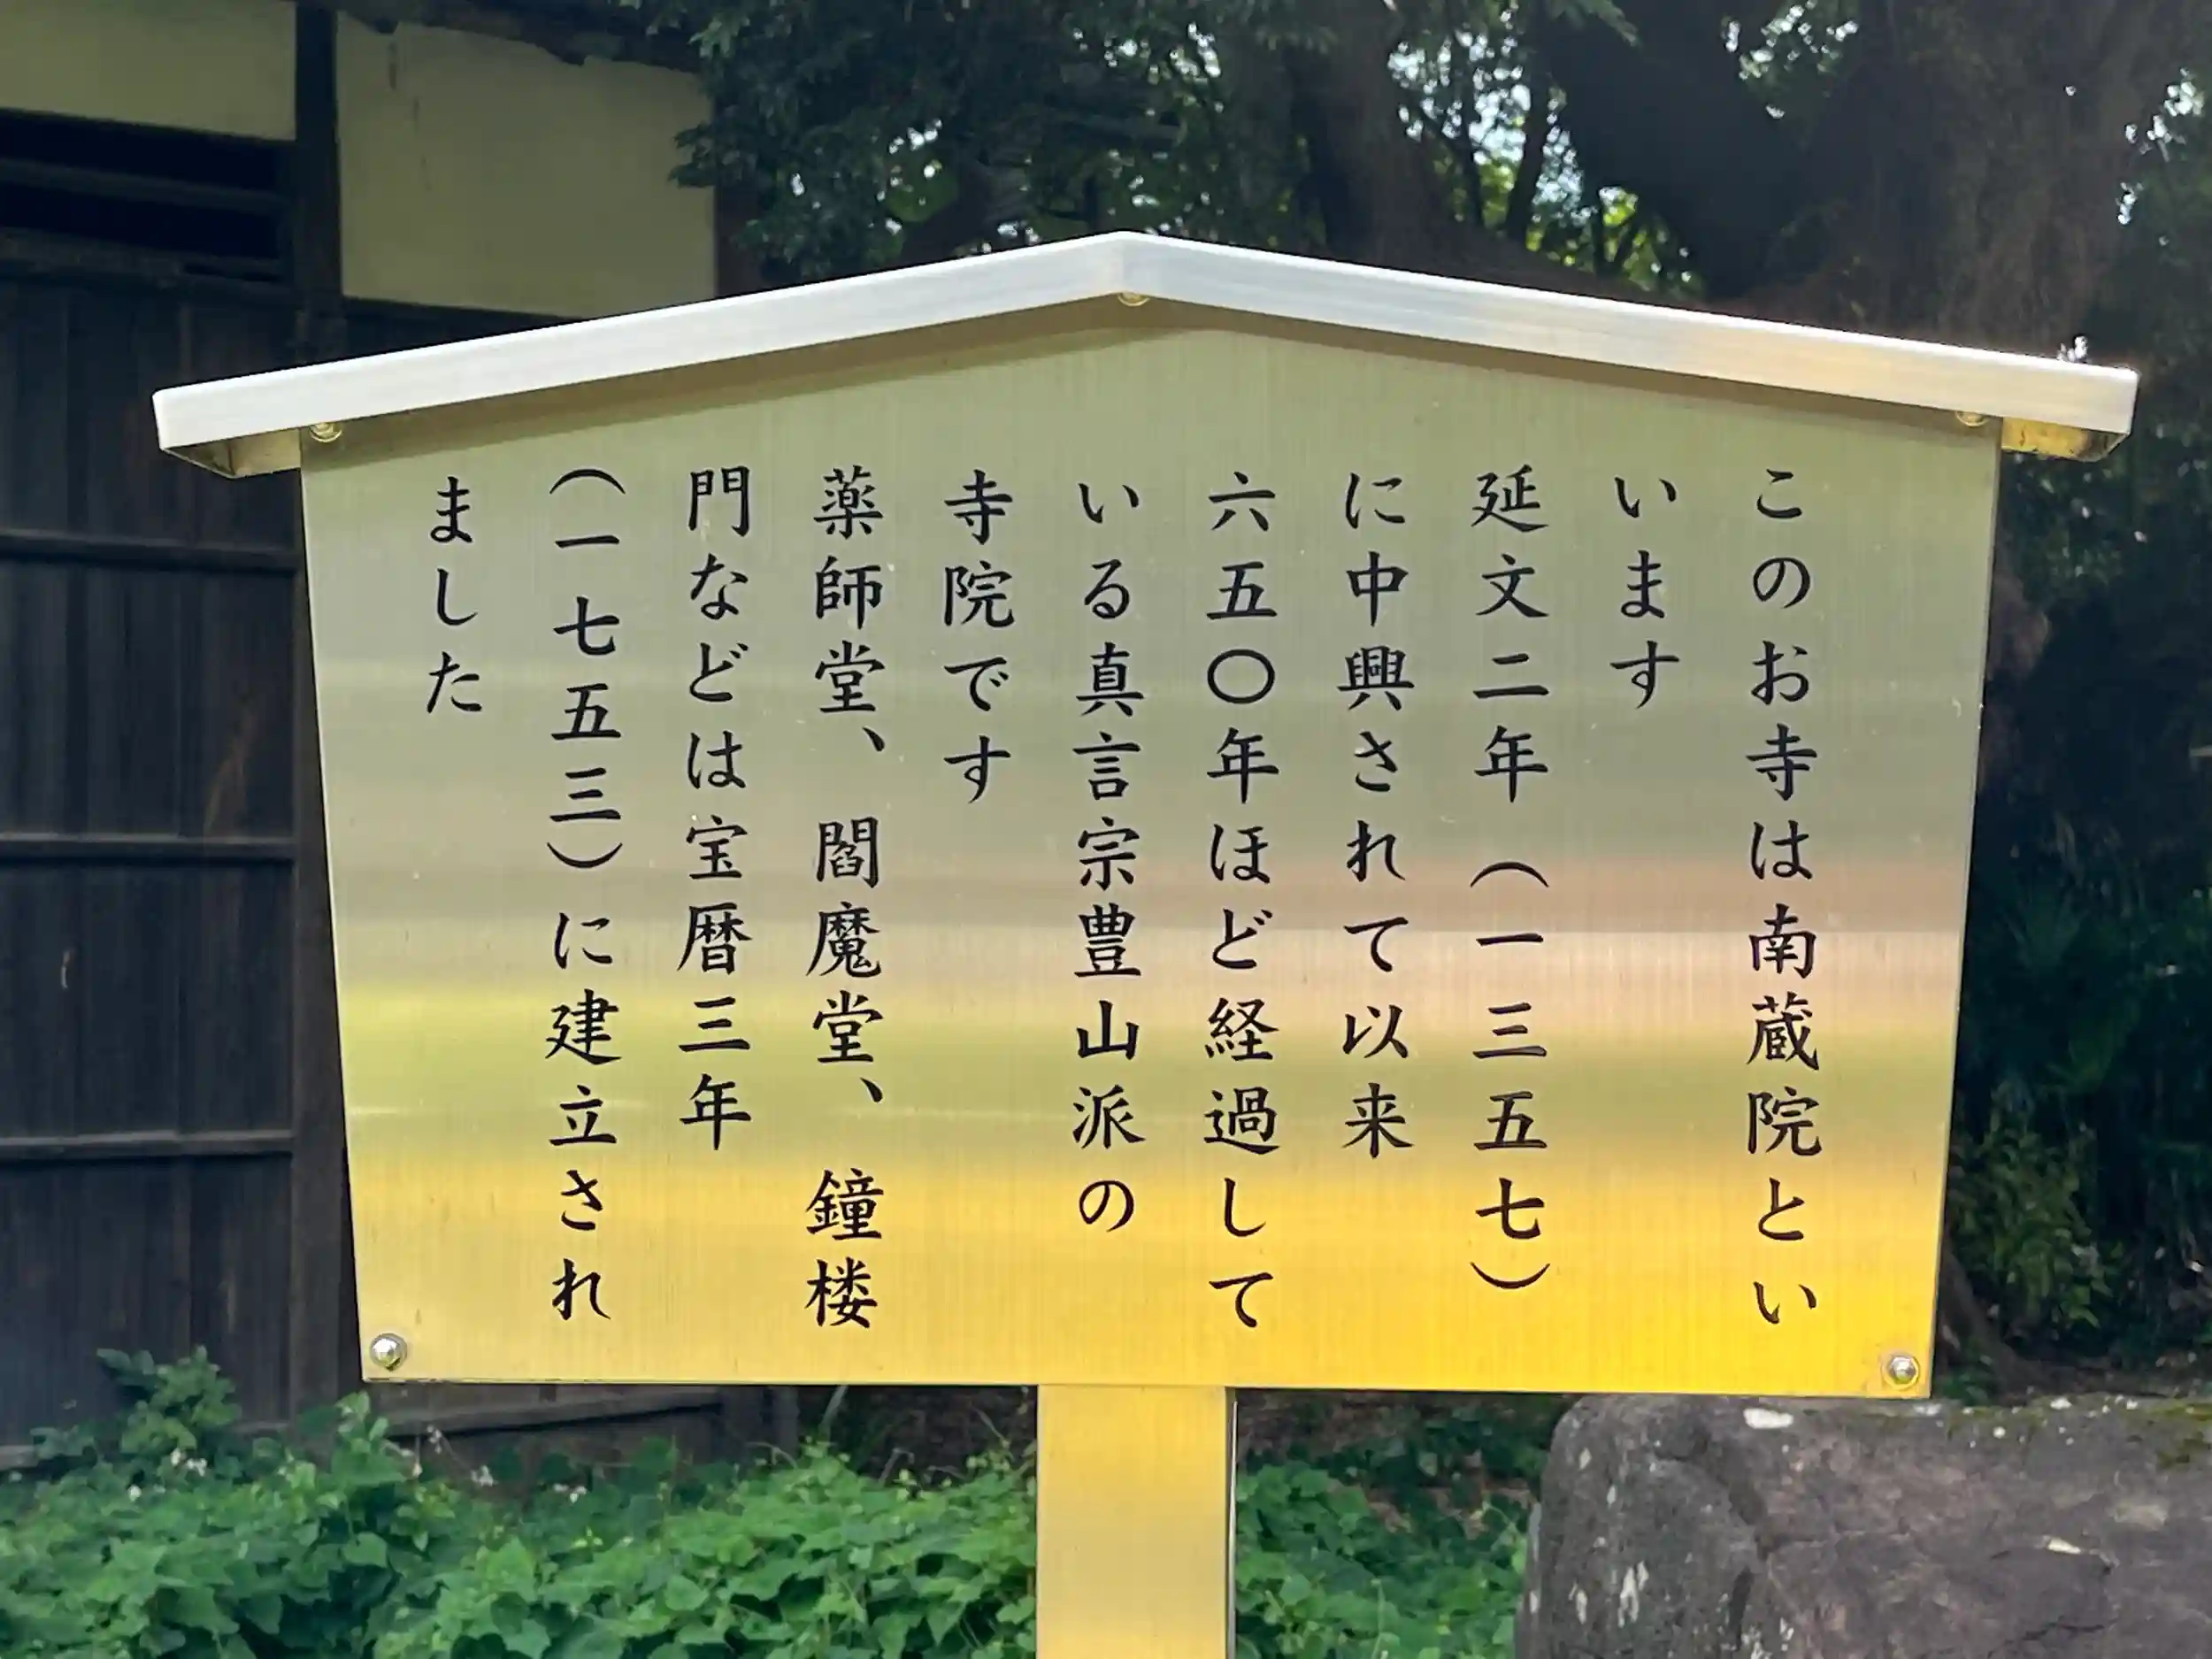 このお寺は南蔵院とい
います
延文二年（一三五七）
に中興されて以来
六五〇年ほど経過して
いる真言宗豊山派の
寺院です
薬師堂、閻魔堂、鐘楼
門などは宝暦三年
（一七五三）に建立され
ました